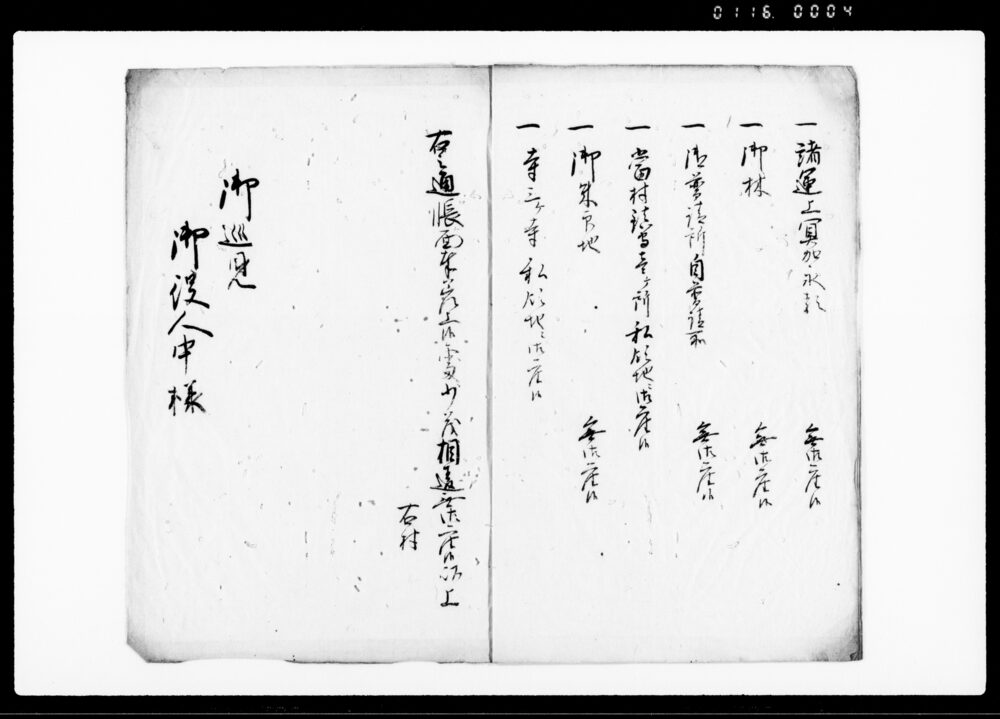 0116. 0004
一 諸運上冥加永類 無御座候
一 御林 無御座候
一 御普請所自普請所 無御座候
一 當村鎮守壱ヶ所私領地ニ御座候
一 御朱印地 無御座候
一 寺三ヶ寺 私領地ニ御座候
右之通帳面奉差上候處少茂相違無御座候以上
右村
御巡見
御役人中様